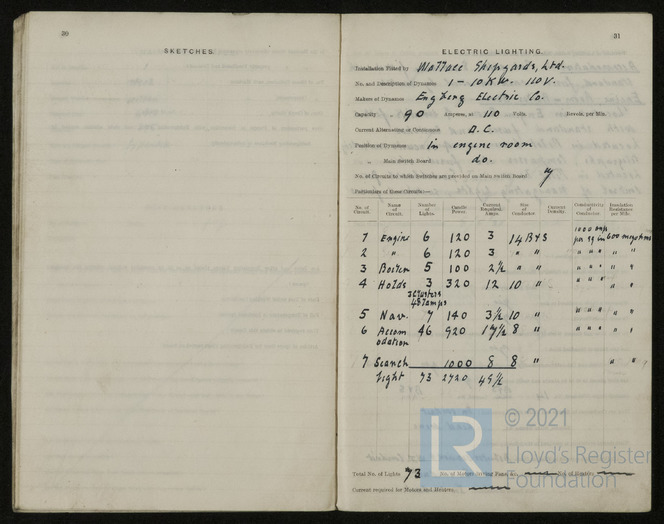 30
SKETCHES.
31
ELECTRIC LIGHTING.
Installation Fitted by Wallace Shipyards, Ltd.
No. and Description of Dynamos 1 - 10 KW. 110 V.
Makers of Dynamos Electric Co.
Capacity 90 Amperes, at 110 Volts, Revols. per Min.
Current Alternating or Continuous D.C.
Position of Dynamos in engine room
Main Switch Board do.
No. of Circuits to which Switches are provided on Main Switch Board 7
Particulars of these Circuits:—
No. of Circuit. Name of Circuit. Number of Lights. Candle Power. Current Required. Amps. Size of Conductor. Current Density. Conductivity of Conductor. Insulation Resistance per Mile.
1 Engine 6 120 3 14 B+S 1000 amp per sq in 600 megohms
2 " 6 120 3 " " " " " " "
3 Boiler 5 100 2½ " " " " " " "
4 Holds 3 320 12 10 " " " " " "
3 Clusters
4 8 Lamps
5 Nav. 7 140 3½ 10 " " " " " "
6 Accom 46 920 17½ 8 " " " " " "
odation
7 Search 1000 8 8 " " "
light 73 2720 49½
Total No. of Lights 73 No. of Motors driving Fans, &c. No. of Heaters
Current required for Motors and Heaters
LR
© 2021
Lloyd's Register
Foundation